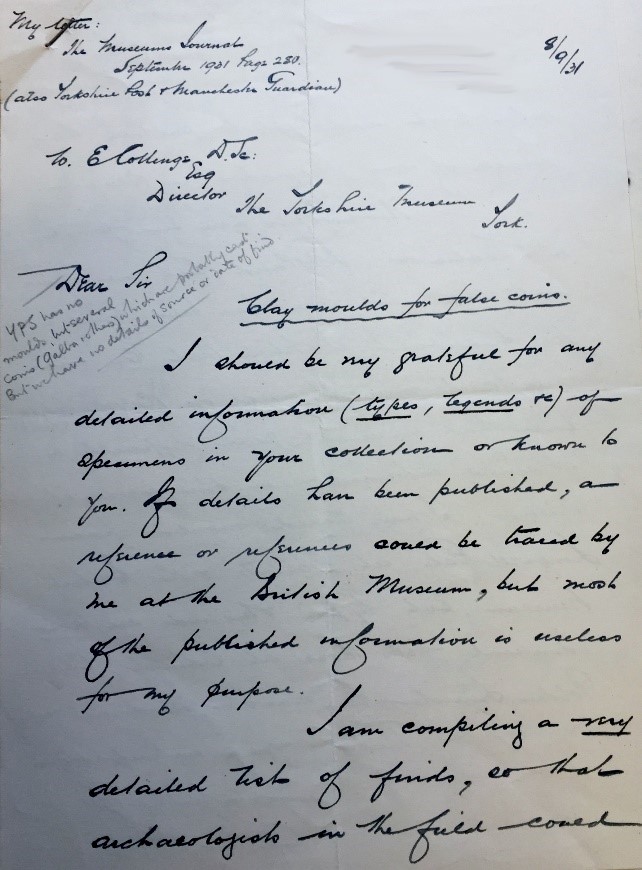 My letter:
The Museums Journal
September 1931 Page 280.
(also Yorkshire Post & Manchester Guardian)
8/9/31
W. E Collinge, D. Sc:
Esq
Director The Yorkshire Museum
York.
Dear Sir
YPS has no
moulds, but several
coins (Galba & others) which are probably cast.
But we have no details of source or date of find.
Clay moulds for false coins.
I should be my grateful for any
detailed information (types, legends &c) of
specimens in your collection or known to
you. If details have been published, a
reference or references could be traced by
me at the British Museum, but most
of the published information is useless
for my purpose.
I am compiling a very
detailed list of finds, so that
archaeologists in the field could